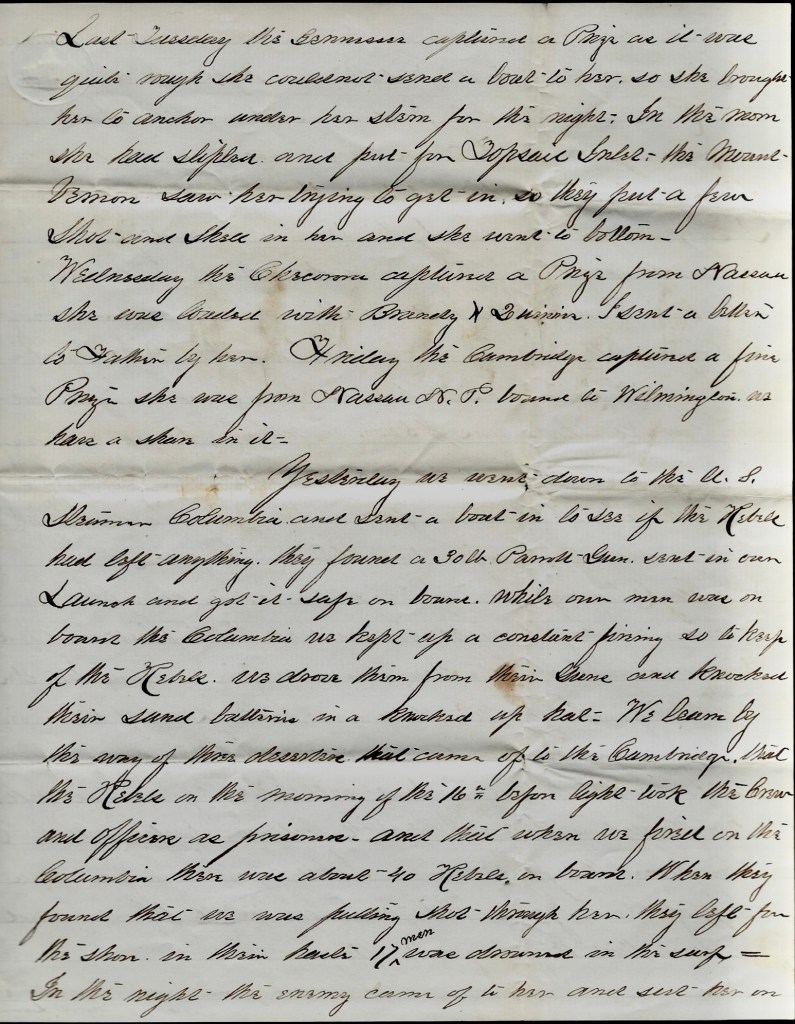 Last Tuesday the Gennessee captured a Prize as it was
quite rough she could not send a boat to her. so she brought
her to anchor under her stern for the night. In the morn
she had slipted and put for Topsail Inlet. the Mount
Vernon saw her trying to get in. so they put a few
Shot and Shell in her and she went to bottom -
Wednesday the Chocorora captured a Prize from Nassau
she was loaded with Brandy & Quinine. I sent a letter
to Father by her. Friday the Cambridge captured a fine
Prize she was from Nassau N. P. bound to Wilmington. we
have a share in it -
Yesterday we went down to the U. S.
Steamer Columbia and sent a boat in to see if the Rebels
had left anything. they found a 30 lb. Parrott Gun. sent in our
Launch and got it safe on board. While our men was on
board the Columbia we kept up a constant fireing so to keep
of the Rebels. we drove them from their Guns and knocked
their sand batteries in a knocked up hat - We learn by
the way of three deserters that came of to the Cambridge. that
the Rebels on the morning of the 16th before light took the Crew
and Officers as prisoners - and that when we fired on the
Columbia there was about 40 Rebels on board. When they
found that we was putting shot through her. they left for
the shore. in their haste 17 men was drowned in the surf =
In the night the enemy came of to her and set her on